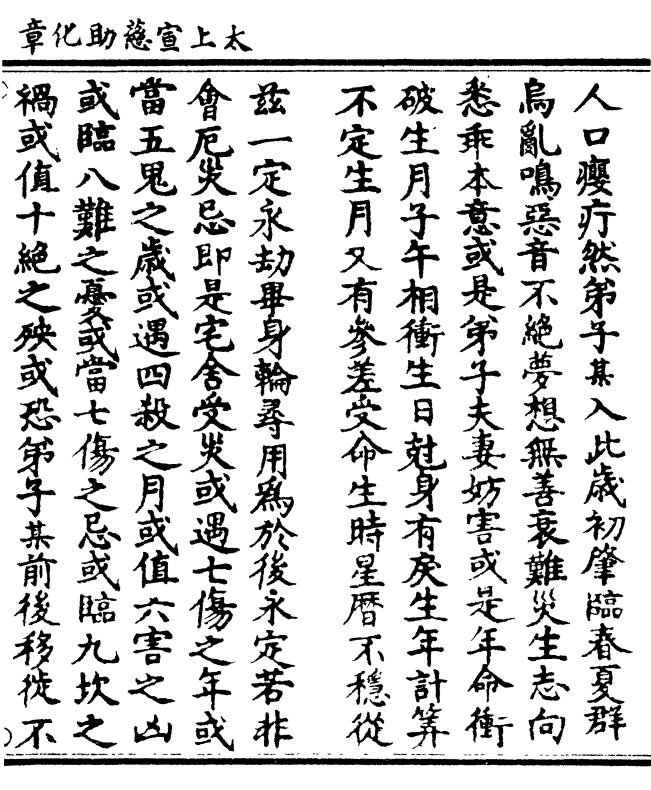 太上宣慈助化章
人口癭疔然弟子某入此歲初肇臨春夏群
烏亂鳴惡音不絕夢想無善衰難災生志向
愁乖本意或是弟子夫妻妨害或是年命衝
破生月子午相衝生日尅身有戾生年計筭
不定生月又有參差受命生時星曆不穩從
茲一定永劫畢身輪尋用爲於後永定若非
會厄災忌即是宅舍受災或遇七傷之年或
當五鬼之歲或遇四殺之月或值六害之凶
或臨八難之憂或當七傷之忌或臨九坎之
禍或值十絕之殃或恐弟子某前後移徙不